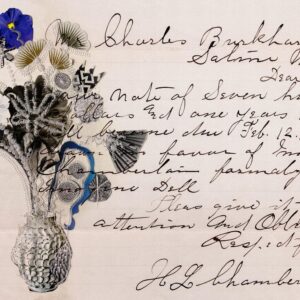 Charles Burkhar
Salone
Dear
note of Seven hu
Dollars and one years
ll become due Feb. 12
favor of M
Chamberlain formaly
Dell
Pleas give it
attention and Oblig
Respctf
H L Chamber